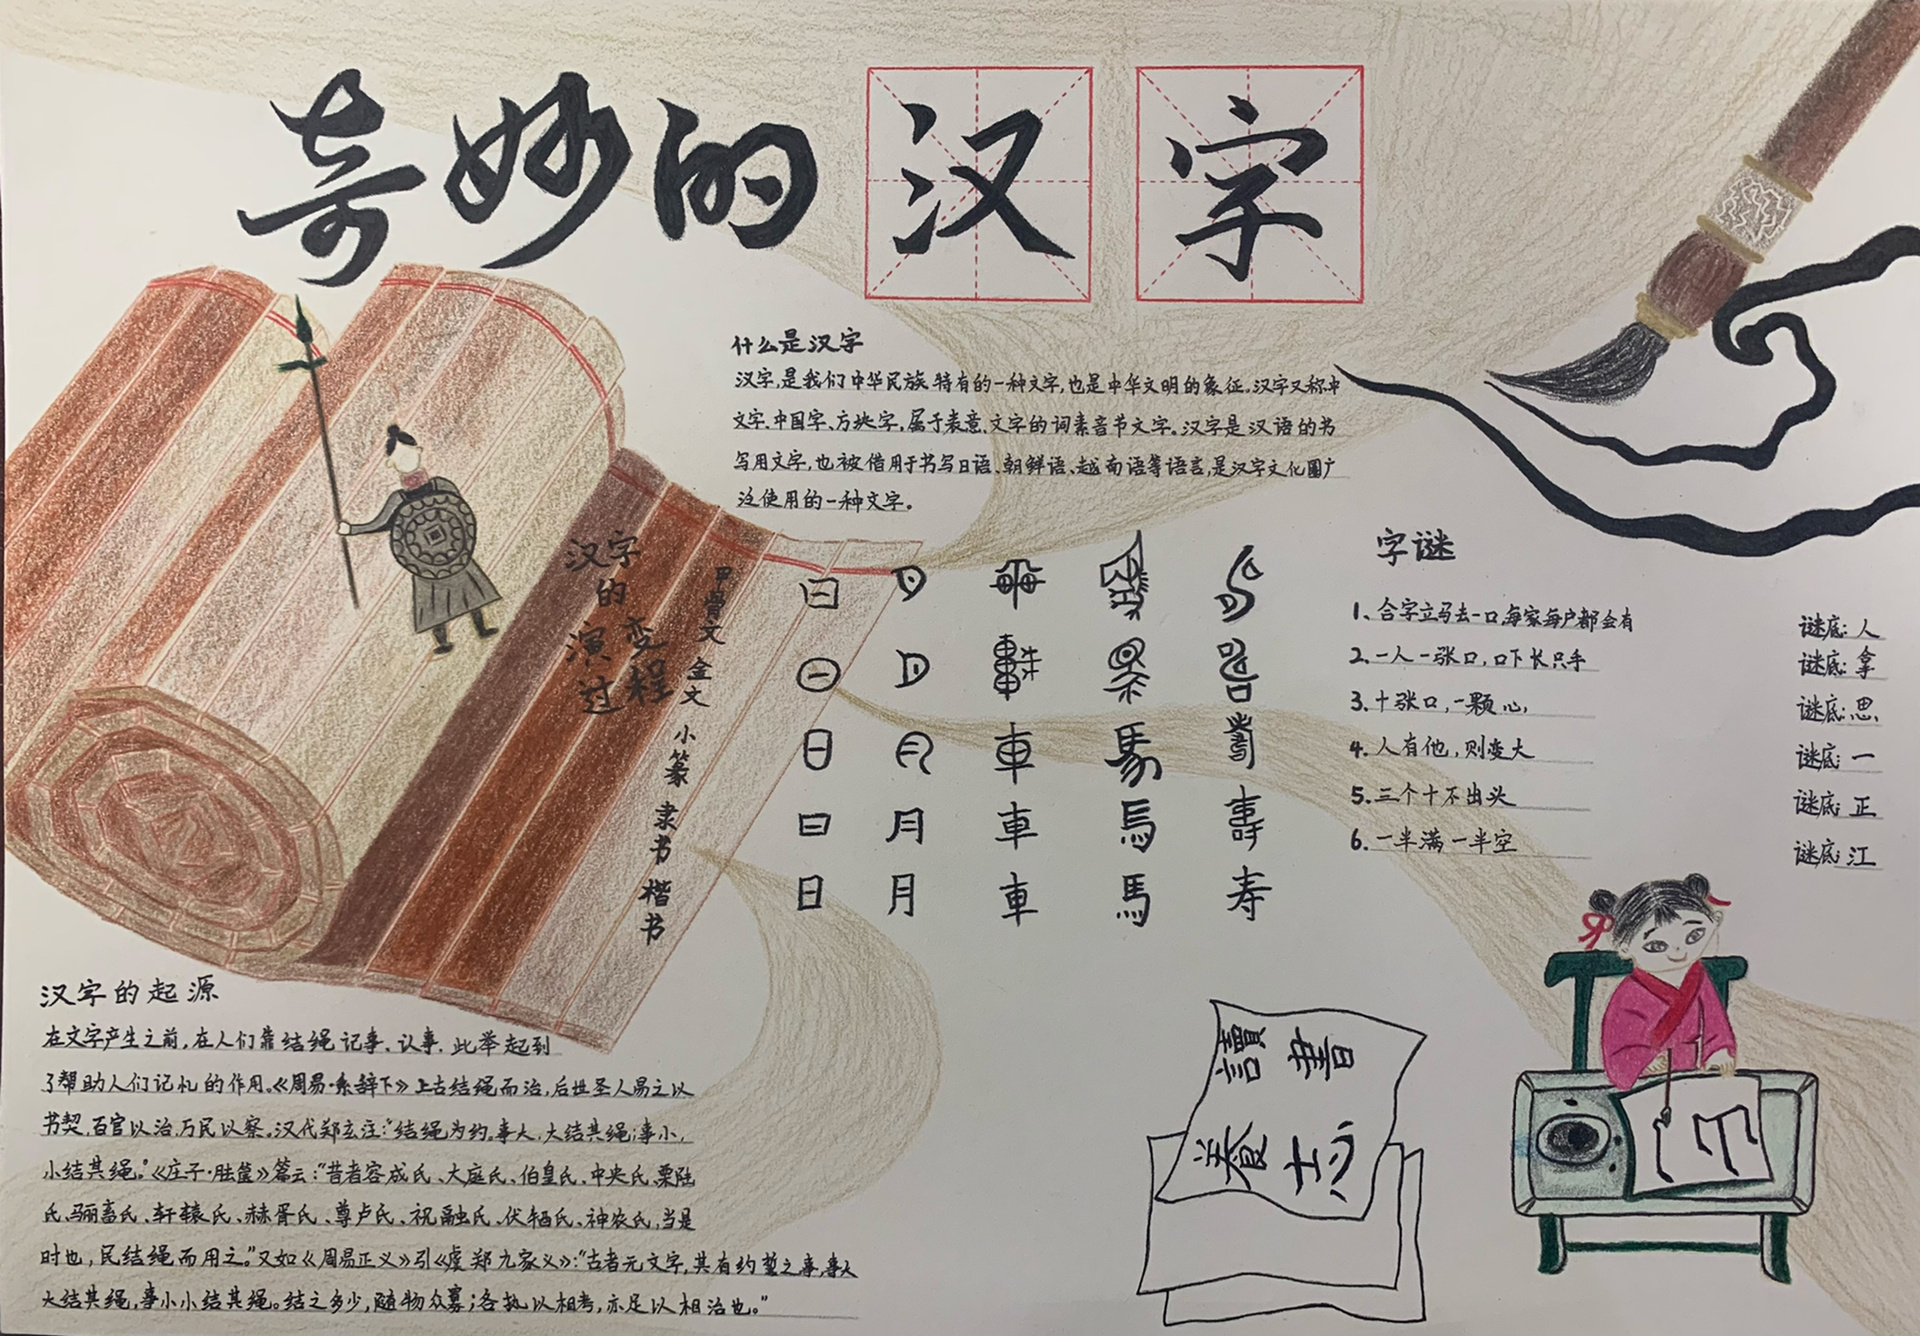 奇妙的汉字
什么是汉字
汉字,是我们中华民族特有的一种文字,也是中华文明的象征。汉字又称中
文字、中国字、方块字,属于表意文字的词素音节文字。汉字是汉语的书
写用文字,也被借用于书写日语、朝鲜语、越南语等语言,是汉字文化圈广
泛使用的一种文字。
汉字
的
演变
过程
甲骨文
金文
小篆
隶书
楷书
日 月 車 馬 寿
字谜
1、合字立马去一口,每家每户都会有 谜底:人
2.一人一张口,口下长只手 谜底:拿
3.十张口,一颗心, 谜底:思
4.人有他,则变大 谜底:一
5.三个十不出头 谜底:正
6.一半满一半空 谜底:江
汉字的起源
在文字产生之前,在人们靠结绳记事、认事,此举起到
了帮助人们记札的作用。《周易·系辞下》上古结绳而治,后世圣人易之以
书契,百官以治,万民以察。汉代郑玄注:“结绳为约。事大,大结其绳;事小,
小结其绳。”《庄子·胠箧》篇云:“昔者容成氏、大庭氏、伯皇氏、中央氏、栗陆
氏、骊畜氏、轩辕氏、赫胥氏、尊卢氏、祝融氏、伏牺氏、神农氏,当是
时也,民结绳而用之。”又如《周易正义》引《虞郑九家义》:“古者无文字,其有约誓之事,事大
大结其绳,事小小结其绳。结之多少,随物众寡;各执以相考,亦足以相治也。”
讀書
養志